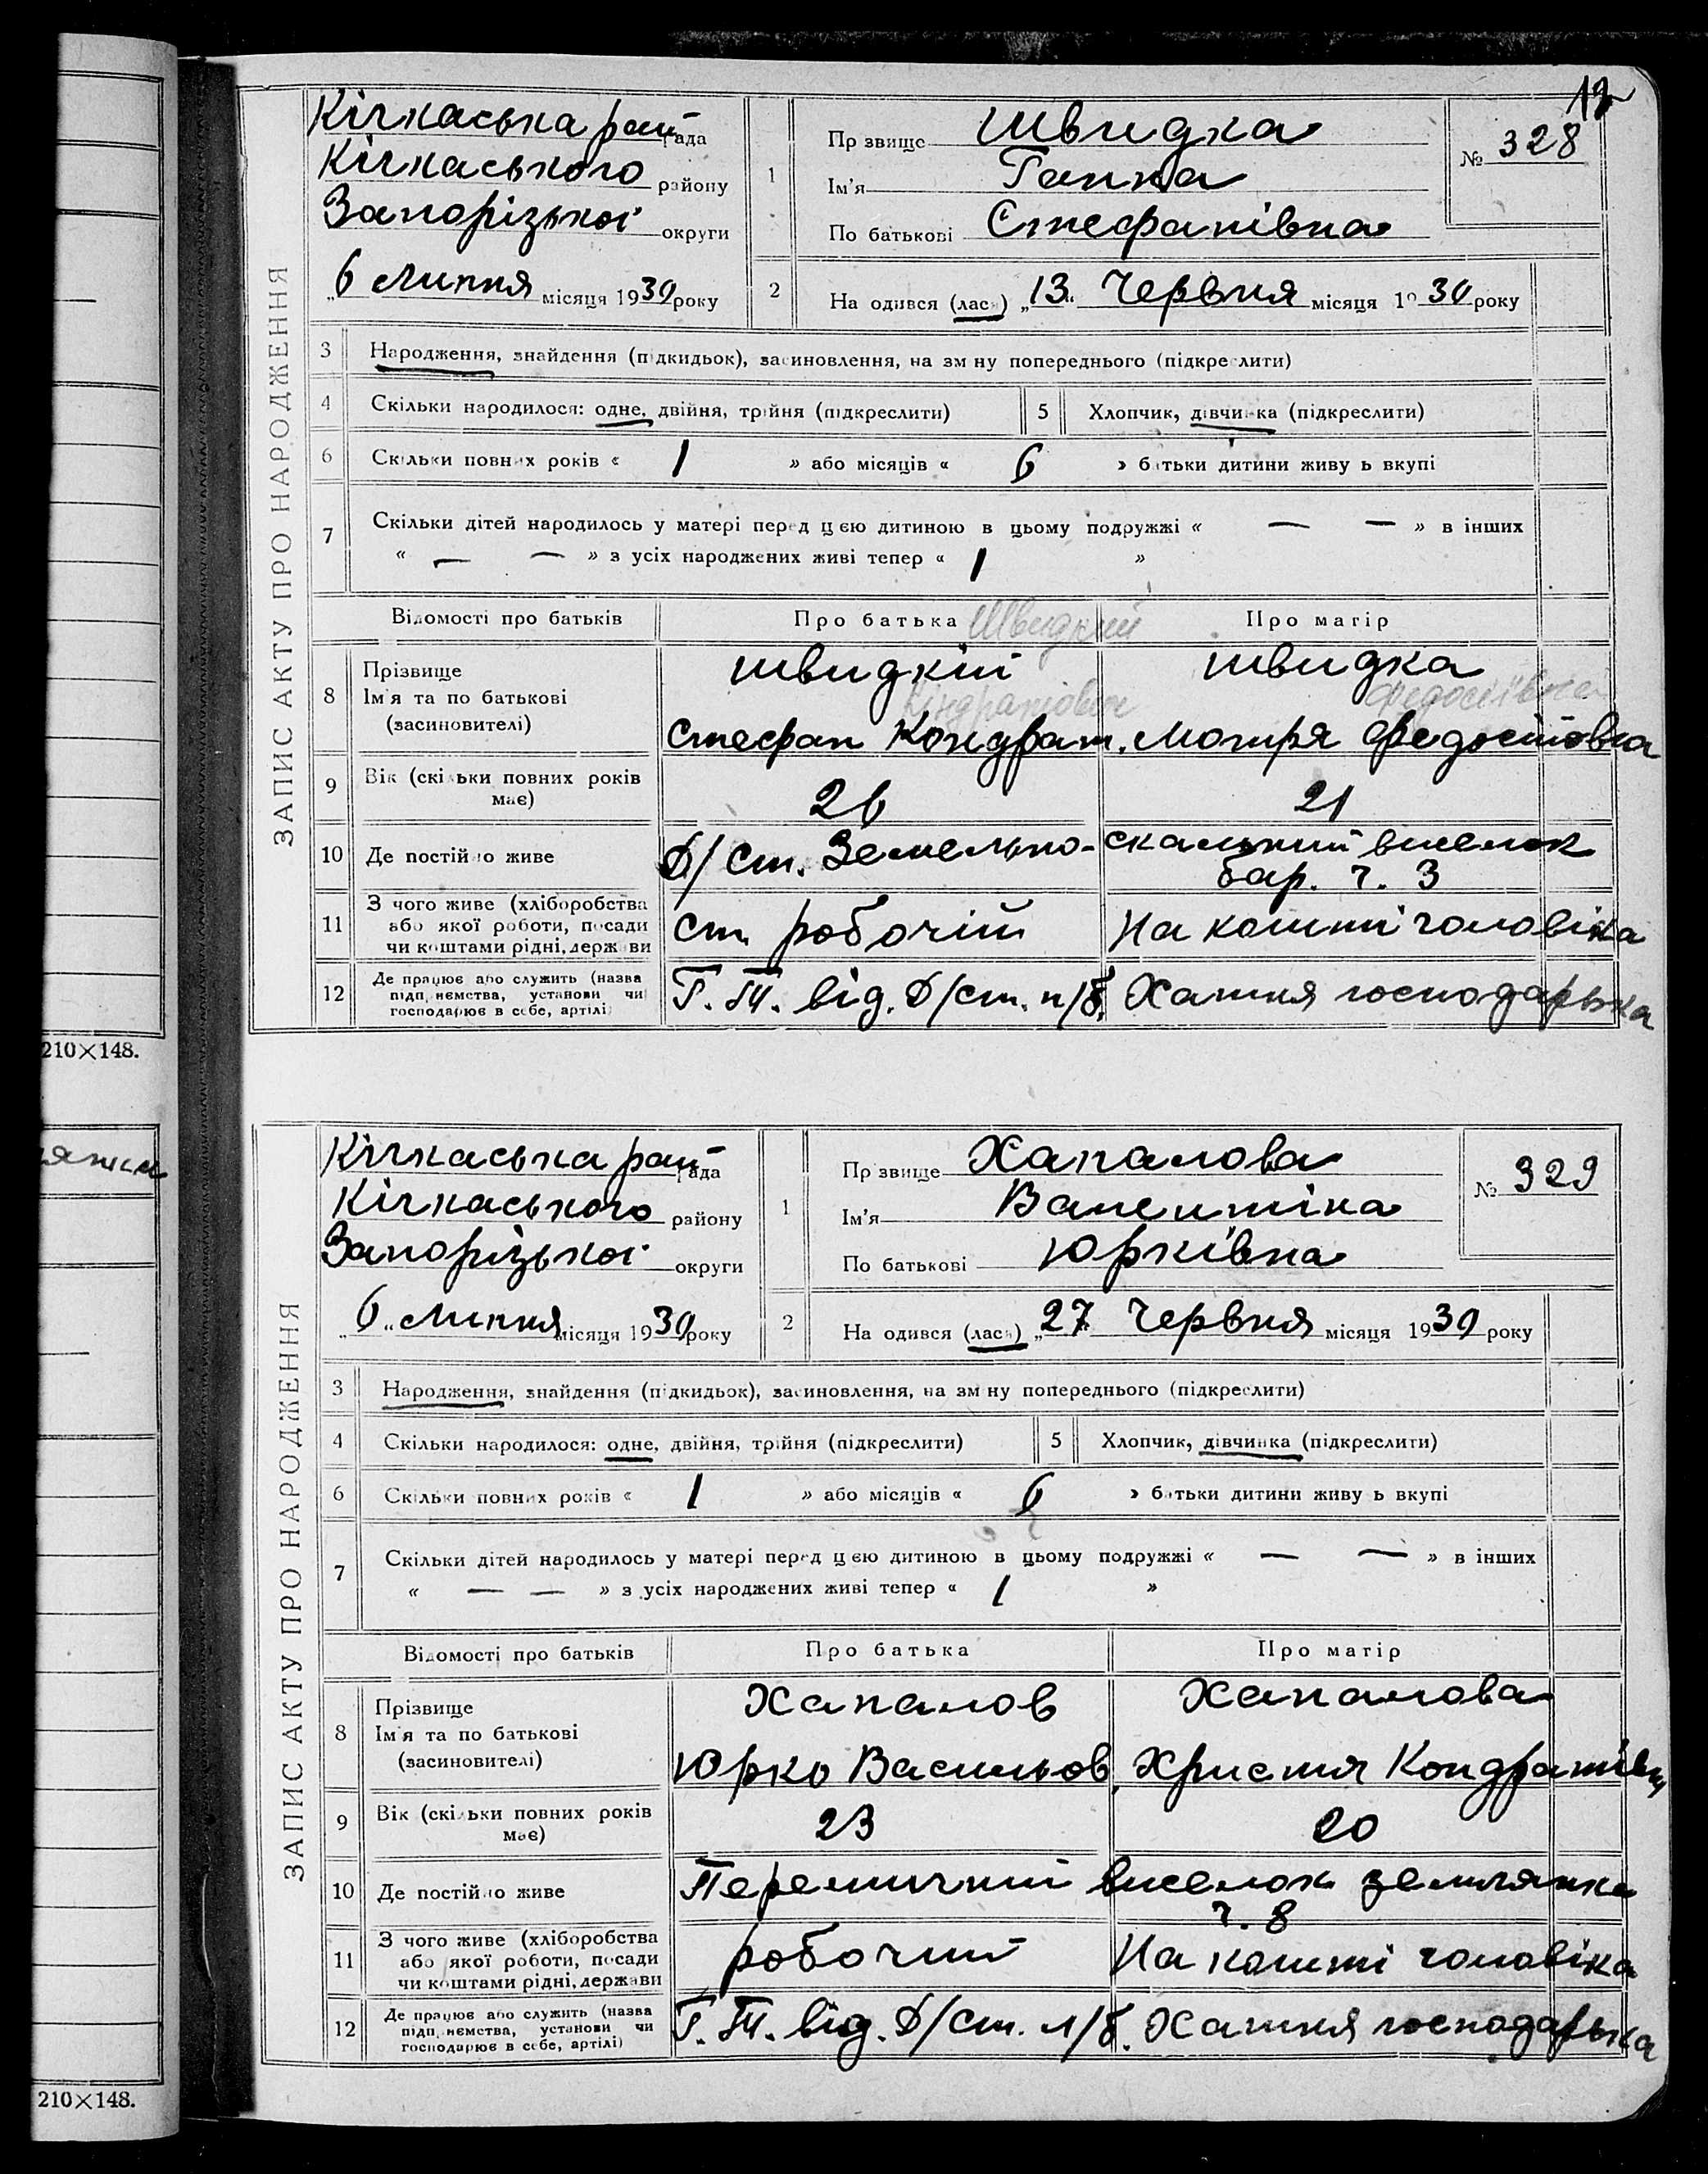 12
ЗАПИС АКТУ ПРО НАРОДЖЕННЯ
Кічкаська рай рада
Кічкаського району
Запорізької округи
„6 Липня місяця 1930 року
1
Прзвище Швидка
Ім'я Ганна
По батькові Стефанівна
№ 328
2 На одився (лась) „13" Червня місяця 1930 року
3 Народження, знайдення (підкидьок), засиновлення, на зм ну попереднього (підкреслити)
4 Скільки народилося: одне, двійня, трійня (підкреслити)
5 Хлопчик, дівчинка (підкреслити)
6 Скільки повних років « 1 » або місяців « 6 » батьки дитини живу ь вкупі
7 Скільки дітей народилось у матері перед цією дитиною в цьому подружжі « — — » в інших
« — — » з усіх народжених живі тепер « 1 »
Відомості про батьків Про батька Про матір
Швидкий
8 Прізвище
Ім'я та по батькові
(засиновителі)
швидкій швидка
Кіндратович Федосіївна
Стефан Кондрат. Мотря Федосіївна
9 Вік (скільки повних років має) 26 21
10 Де постійно живе Д/Ст. Земельно-скальний виселок
бар. ч. 3
11 З чого живе (хліборобства
або якої роботи, посади
чи коштами рідні, держави
ст. робочій На кошті чоловіка
12 Де працює або служить (назва
підп, ємства, установи чи
господарює в себе, артілі)
Г.Т. від. Д/ст. п/б. Хатня господарька
210×148.
ЗАПИС АКТУ ПРО НАРОДЖЕННЯ
Кічкаська рай рада
Кічкаського району
Запорізької округи
„6" Липня місяця 1930 року
1
Прзвище Хапалова
Ім'я Валентіна
По батькові Юрківна
№ 329
2 На одився (лась) „27" Червня місяця 1930 року
3 Народження, знайдення (підкидьок), засиновлення, на зм ну попереднього (підкреслити)
4 Скільки народилося: одне, двійня, трійня (підкреслити)
5 Хлопчик, дівчинка (підкреслити)
6 Скільки повних років « 1 » або місяців « 6 » батьки дитини живу ь вкупі
7 Скільки дітей народилось у матері перед цією дитиною в цьому подружжі « — — » в інших
« — — » з усіх народжених живі тепер « 1 »
Відомості про батьків Про батька Про матір
8 Прізвище
Ім'я та по батькові
(засиновителі)
Хапалов Хапалова
Юрко Васильов. Христя Кондратівн
9 Вік (скільки повних років має) 23 20
10 Де постійно живе Перемичний виселок землянка
ч. 8
11 З чого живе (хліборобства
або якої роботи, посади
чи коштами рідні, держави
робочий На кошті чоловіка
12 Де працює або служить (назва
підп, ємства, установи чи
господарює в себе, артілі)
Г.Т. від. Д/ст. л/б. Хатня господарька
210×148.